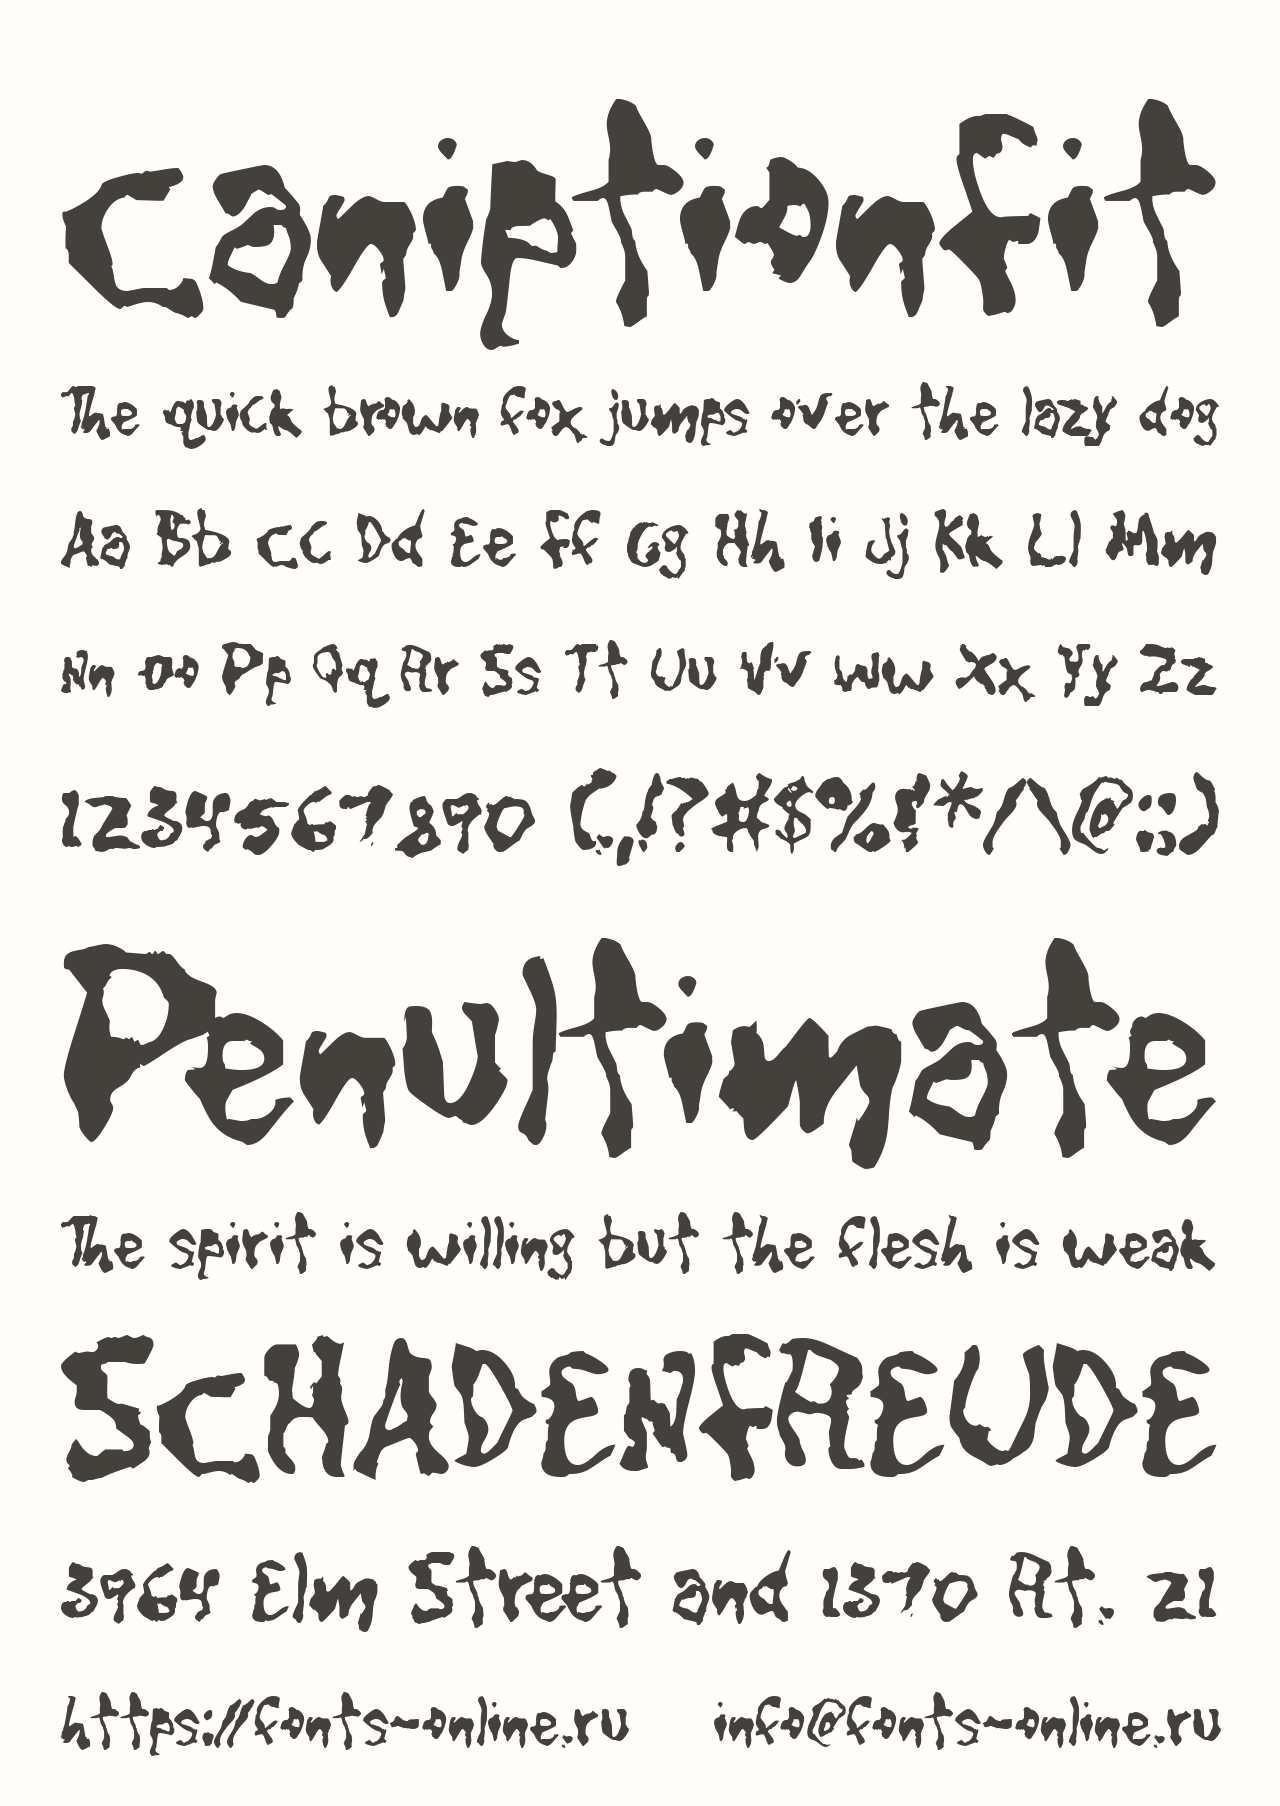 Caniptionfit
The quick brown fox jumps over the lazy dog
Aa Bb Cc Dd Ee Ff Gg Hh Ii Jj Kk Ll Mm
Nn Oo Pp Qq Rr Ss Tt Uu Vv Ww Xx Yy Zz
1234567890 (.,!?#$%&*/\@:;)
Penultimate
The spirit is willing but the flesh is weak
SCHADENFREUDE
3964 Elm Street and 1370 Rt. 21
https://fonts-online.ru info@fonts-online.ru